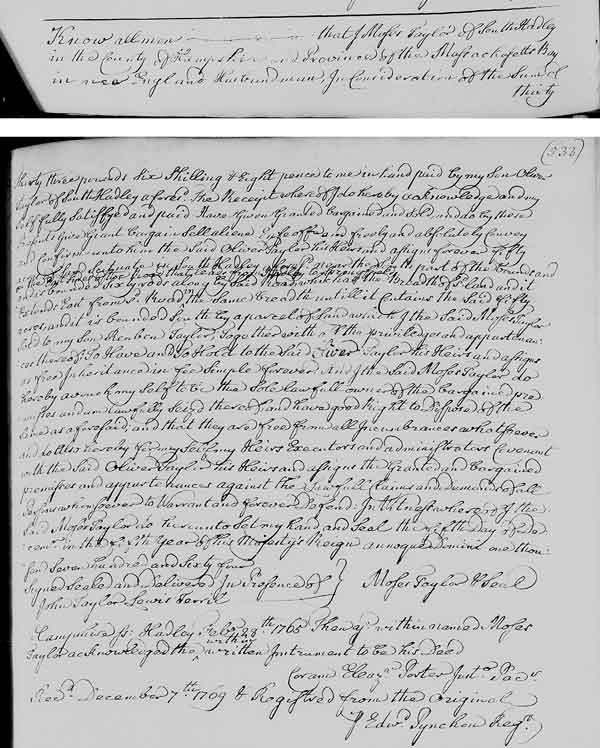 Know all men that I Moses Taylor of South Hadley
in the County of Hampshire and Province of the Massachusetts Bay
in new England Husbandman In Consideration of the Sum of
thirty
(533)
thirty three pounds six Shilling & Eight pence to me in hand paid by my Son Oliver
Taylor of South Hadley afores.d The Receipt whereof I do hereby acknowledge and my
self fully satisfyed and paid Have Given Granted Bargained and Sold and do by these
Presents Give Grant Bargain Sell aliene Enfeoffe and freely and absolutely Convey
and Confirm unto him the Said Oliver Taylor his Heirs and assigns forever fifty
acres in South Hadley the South part of the
and Sixty rods along by Said Road which is the Breadth of s.d land and it
Extends East from s.d Road the Same Breadth untill it Contains the Said fifty
acres and it is bounded South by a parcel of land which I the Said Moses Taylor
Sold to my Son Reuben Taylor, Together with all the priviledges and appurtenan=
ces thereof, To Have and To Hold to the Said Oliver Taylor his Heirs and assigns
as free Inheritance in fee Simple forever And I the Said Moses Taylor do
hereby avouch my Self to be the Sole lawfull owner of the bargained pre
mises and am lawfully Seized thereof and have good Right to Dispose of the
Same as aforesaid, and that they are free from all Incumbrances whatsoever
and do also hereby for my Self my Heirs Executors and administrators Covenant
with the Said Oliver Taylor his Heirs and assigns the Granted and Bargained
premisses and appurtenances against the Lawfull Claims and demands of all
Persons whomsoever to Warrant and forever Defend: In Witness whereof I the
Said Moses Taylor do hereunto Set my hand and Seal the fifth day of de
cem.r in the Year of his Majesty's Reign annoque Domini one thou=
sand Seven hundred and Sixty four
Signed Seald and delivered In Presence of } Moses Taylor & Seal
John Taylor Lewis Terril
Hampshire ss: Hadley Feb.y 28.th 1765 Then y.e within named Moses
within
Taylor acknowledged the written Instrument to be his Deed
Coram Eleaz.r Porter Just.s Pac.s
Rec.d December 7.th 1769 & Registred from the Original
P Edw.d Pynchon Reg.r